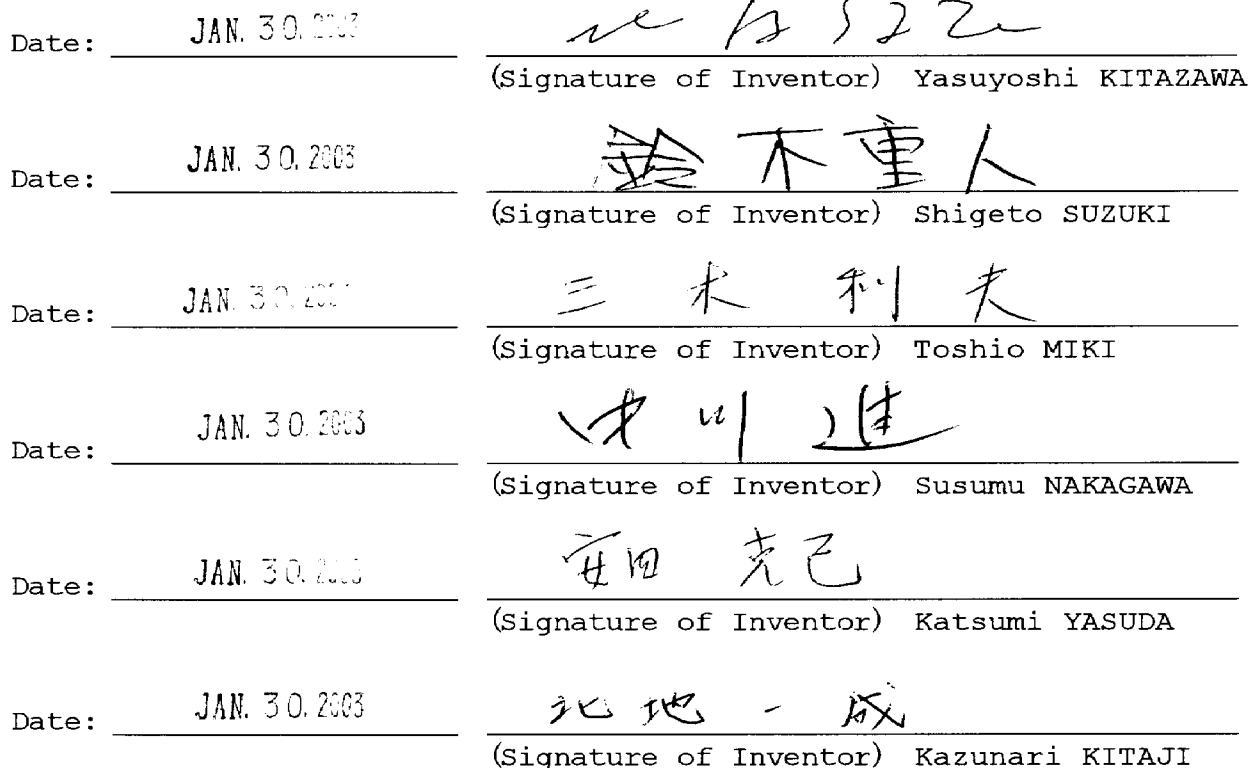 Date: JAN. 30. 2003
(Signature of Inventor) Yasuyoshi KITAZAWA
Date: JAN. 30. 2003 鈴木重人
(Signature of Inventor) Shigeto SUZUKI
Date: JAN. 30. 2003 三木 利夫
(Signature of Inventor) Toshio MIKI
Date: JAN. 30. 2003 中川 進
(Signature of Inventor) Susumu NAKAGAWA
Date: JAN. 30. 2003 安田 克己
(Signature of Inventor) Katsumi YASUDA
Date: JAN. 30. 2003 北地 一成
(Signature of Inventor) Kazunari KITAJI